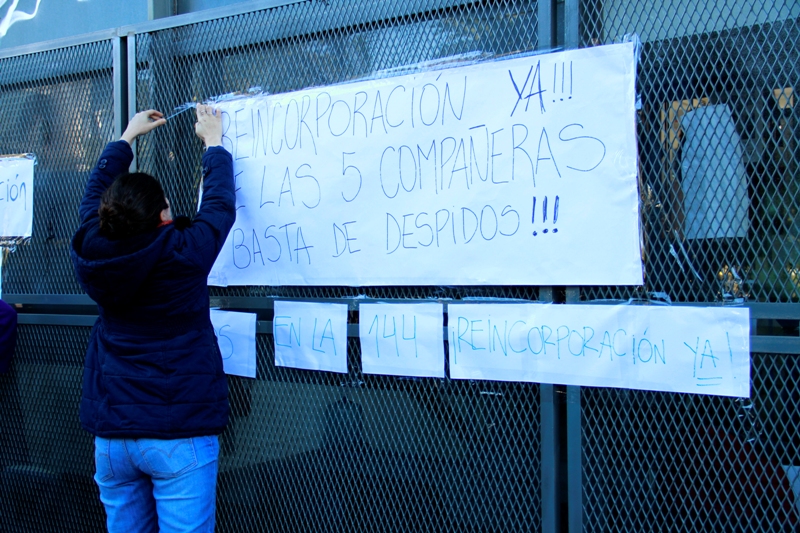 REINCORPORACIÓN YA!!!
LAS 5 COMPAÑERAS
BASTA DE DESPIDOS!!!
EN LA 144 ¡REINCORPORACIÓN YA!